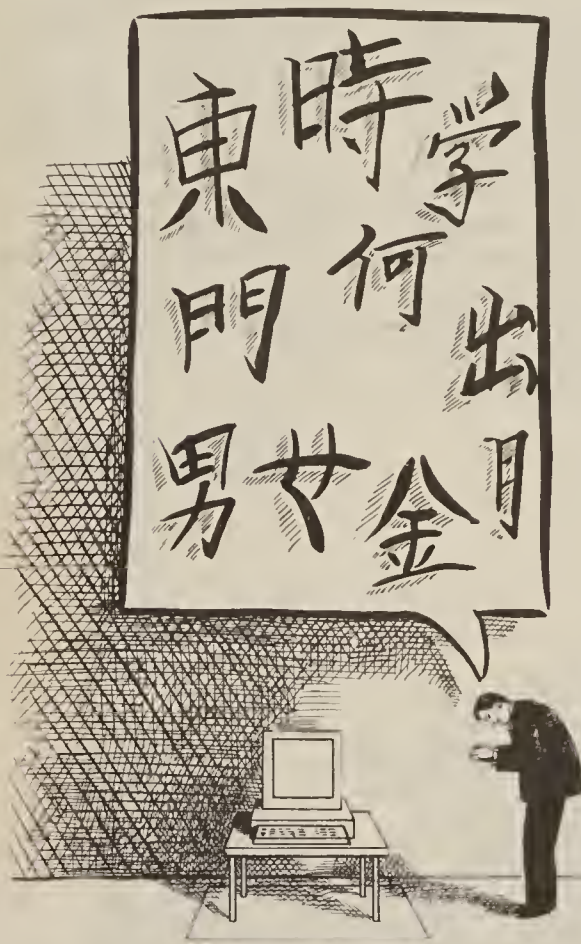 東 時 学
門 何 出
男 金 月